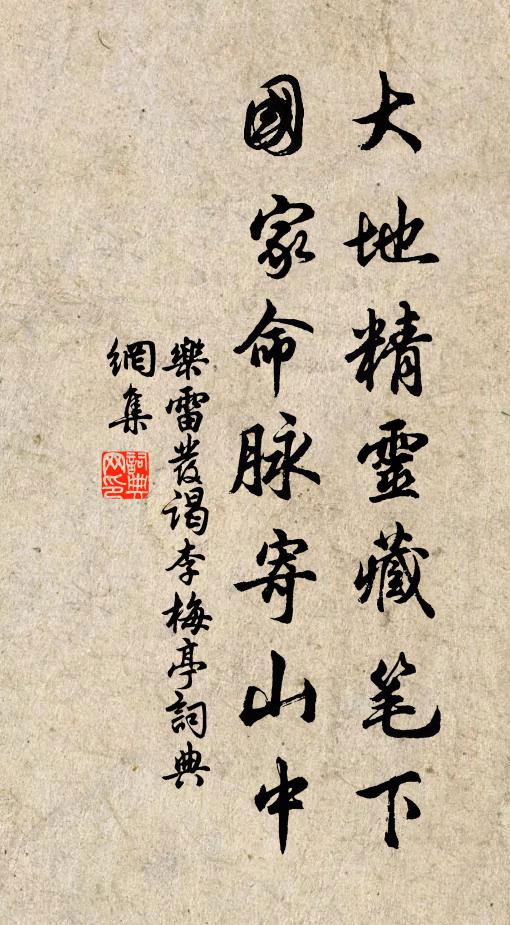 大地精靈藏笔下
國家命脉寄山中
樂雷發谒李梅亭詞典
網集
詞典
网印